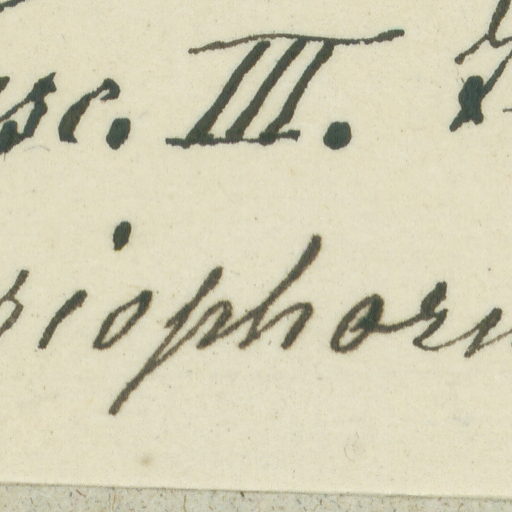 sc. III.
riophor